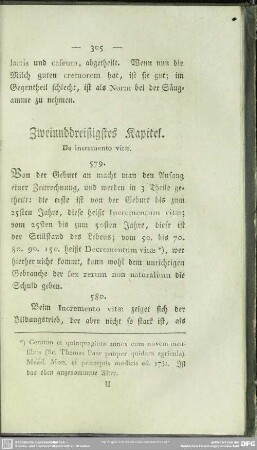 — 305 —
lactis und caseum, abgetheilt. Wenn nun die
Milch guten cremorem hat, ist sie gut; im
Gegentheil schlecht, ist als Norm bei der Säug-
amme zu nehmen.
Zweiunddreißigstes Kapitel.
De incremento vitae.
579.
Von der Geburt an macht man den Anfang
einer Zeitrechnung, und werden in 3 Theile ge-
theilt: die erste ist von der Geburt bis zum
25sten Jahre, diese heißt Incrementum vitae;
vom 25sten bis zum 50sten Jahre, diese ist
der Stillstand des Lebens; vom 50. bis 70.
80. 90. 150. heißt Decrementum vitae *), wer
hierher nicht kommt, kann wohl dem unrichtigen
Gebrauche der sex rerum non naturalium die
Schuld geben.
580.
Beim Incremento vitae zeiget sich der
Bildungstrieb, der aber nicht so stark ist, als
*) Centum et quinquaginta annos cum novem men-
sibus (Sc. Thomas Parr pauper quidam agricola)
Mead. Mon. et praecepta medica ed. 1751. Ist
das eben angenommene Alter.
U